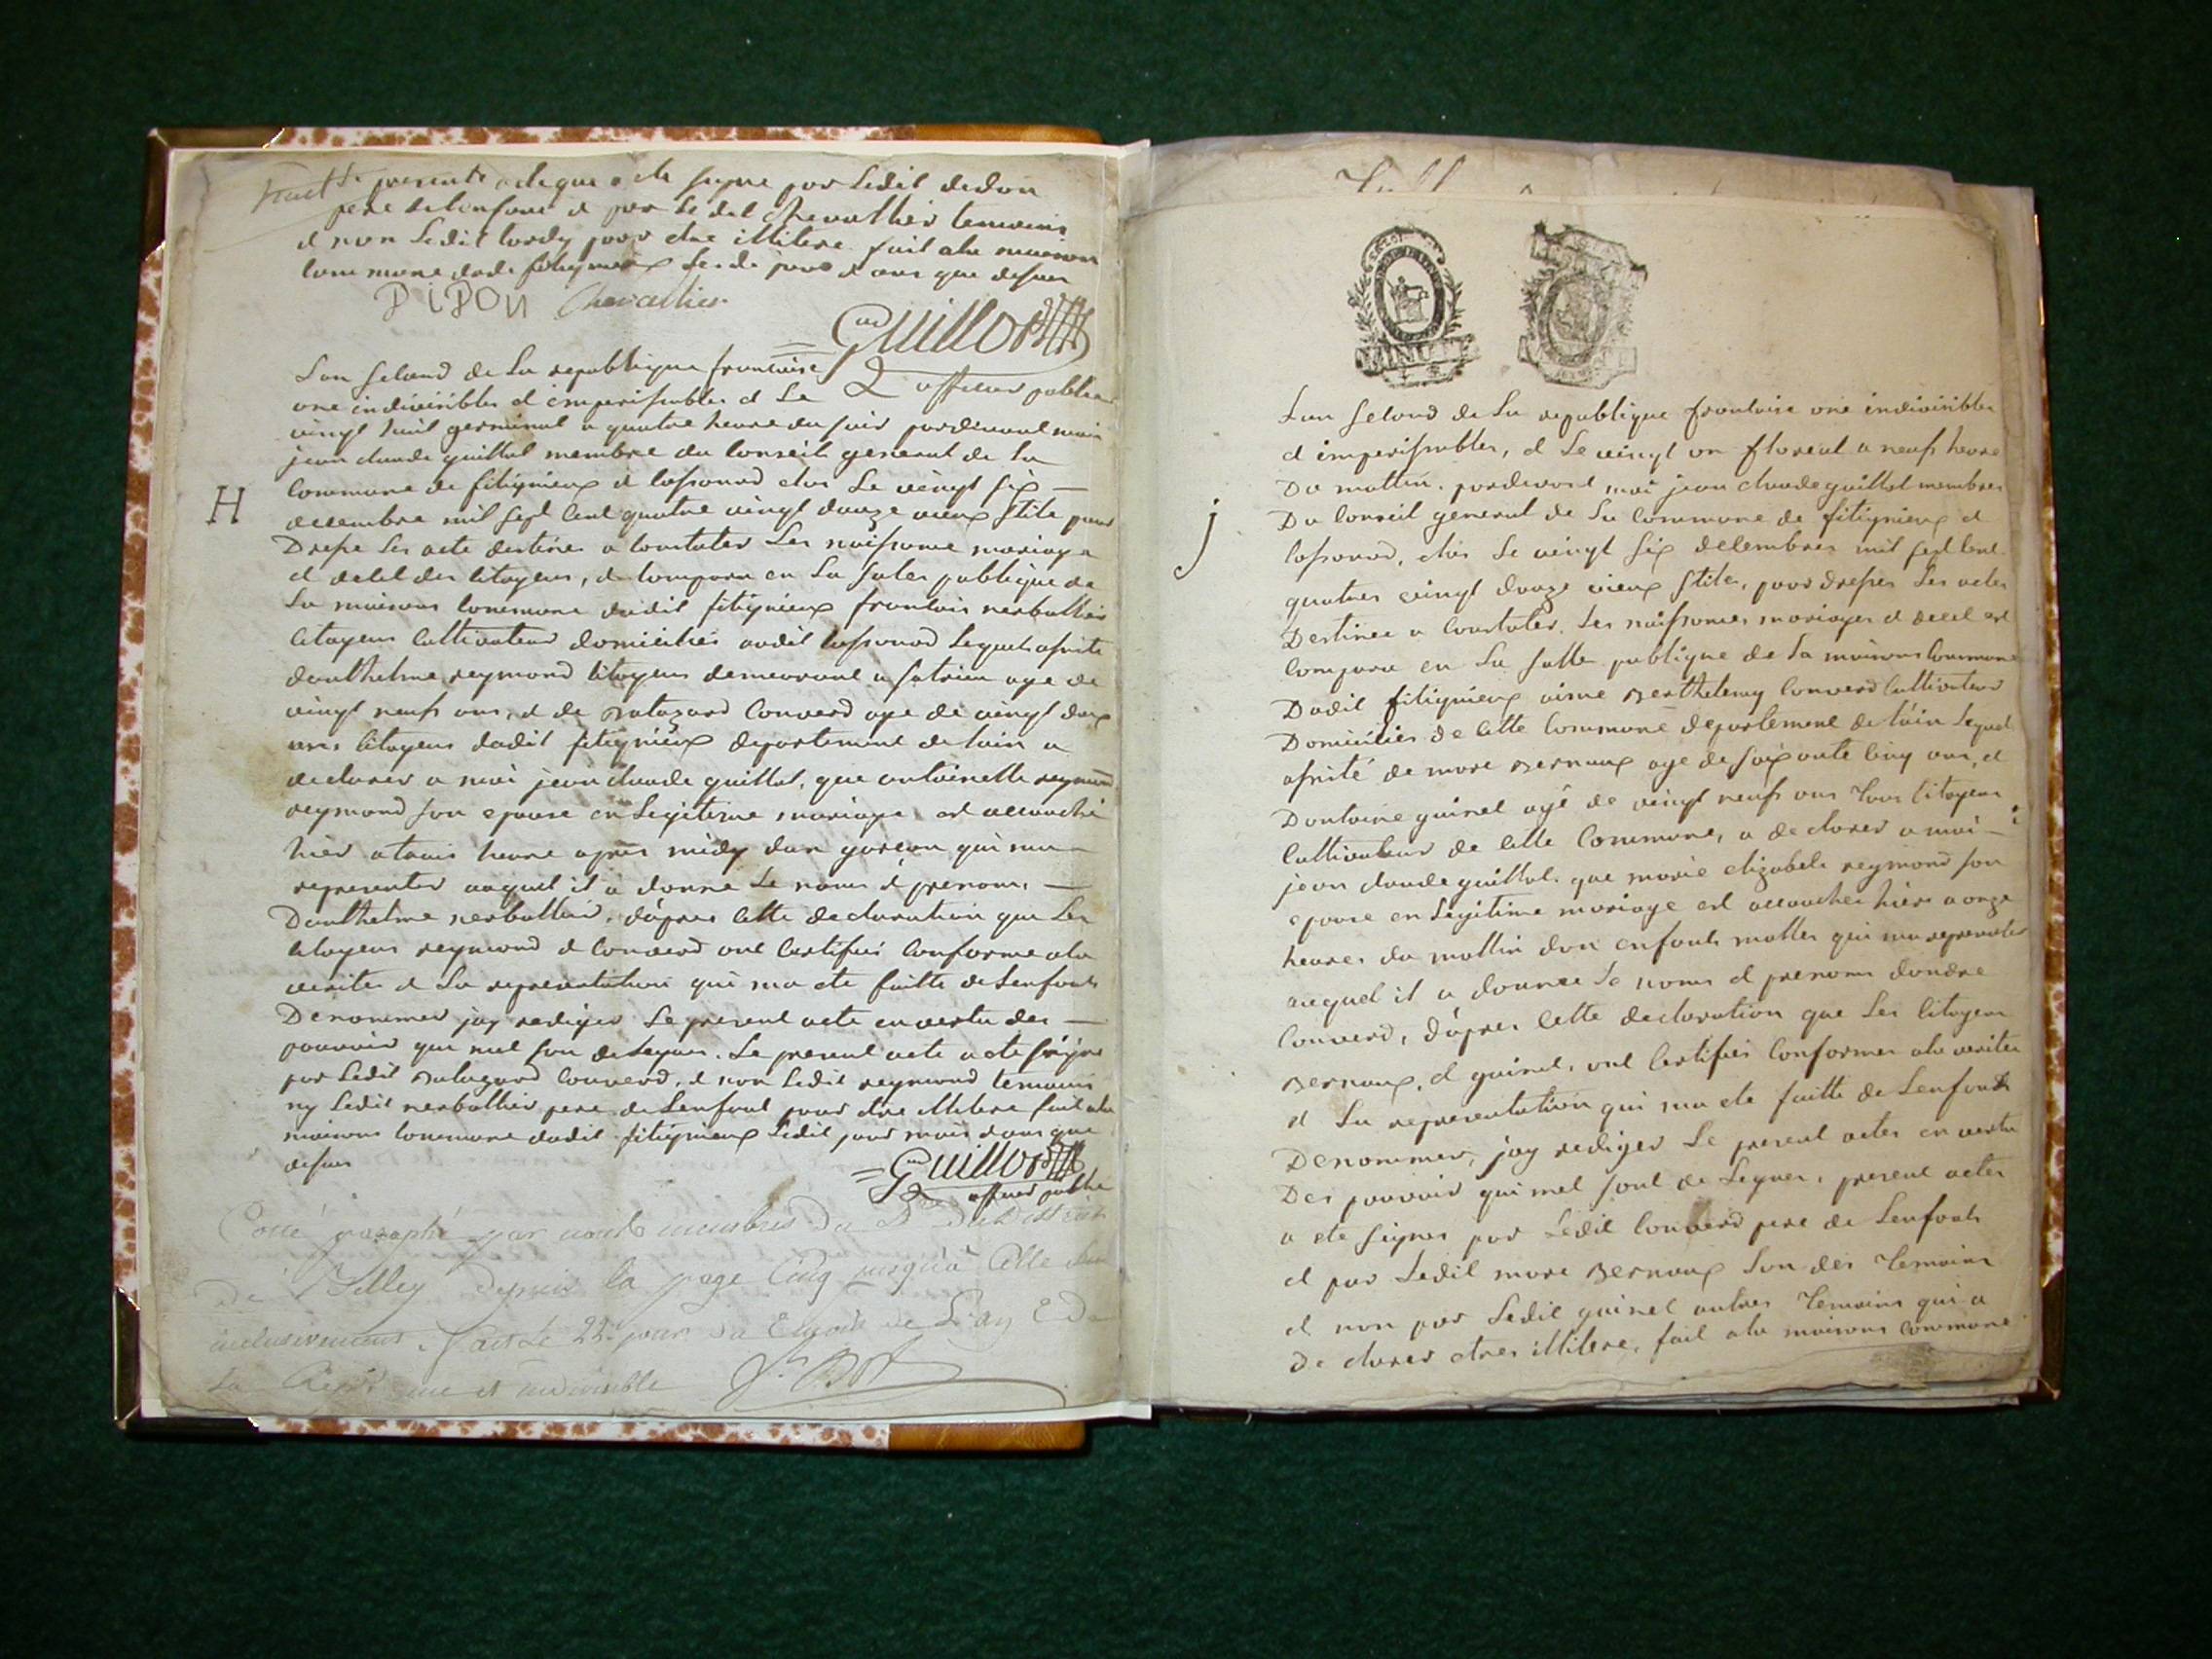 presente acte que a ete signe par Ledit didon
pere de Lenfant et par Le dit chevallier temoins
et non Ledit pour etre illitere fait ala maison
commune dudit fitignieux Ledit jour et ans que desus
DiDON Chevallier
Guillot
officier public
Lan second de La republique francaise
une indivisibles et imperissables et Le
vingt huit germinal a quatre heure du soir pardevant moi
jean claude guillot membre du Conseil general de La
Commune de fitignieux et lassoure elus Le vingt six
H
decembre mil sept cent quatre vingt douze vieux stile pour
Dresse Les acte destines a constater Les naissance mariage
et deces des citoyens, et comparu en La sales publique de
La maisons commune dudit fitignieux francois
citoyens cultivateur domicilies audit Lequel asisté
danthelme reymond citoyens demeurant a age de
vingt neufs ans, et de Balazard Converd age de vingt deux
ans citoyens dudit fitignieux departement de lain a
declarer a moi jean claude guillot, que antoinette
reymond son epouse en Legitime mariage est accouché
hier a trois heure apres midy dun garcon qui ma
representer auquel il a donné Le noms et prenoms
Danthelme dapres cette declaration que Les
citoyens reymond et Converd ont Certifiés Conforme ala
verites et La representation qui ma ete faitte de Lenfants
Denommer jay rediger Le present acte en vertu des
pouvoir qui met son delegues. Le present acte a ete signe
par Ledit Balazard Converd, et non Ledit reymond temoins
ny Ledit pere de Lenfant pour etre illitere fait ala
maisons commune dudit fitignieux Ledit jour mois et ans que
desus
Guillot
officier public
Coté paraphé par nous membres du
De Belley depuis la page Cinq jusqu'à Celle
inclusivement. fait le jour
La une et indivisible
Lan second de La republique francaise une indivisibles
et imperissables, et Le vingt un floreal a neufs heure
Du mattin. pardevant moi jean claude guillot membres
j
Du Conseil general de La Commune de fitignieux et
elus Le vingt six decembres mil sept cent
quatres vingt douze vieux stiles, pour dresser Les actes
Destinee a Constater. Les naissances mariages et deces est
Comparu en La salle publique de La maisons Commune
Dudit fitignieux aime Berthelemy Converd Cultivateur
Domicilies de Cette Commune departement de lain Lequel
asisté de marc Bernaux age de soixante cinq ans, et
Dantoine guinet agé de vingt neufs ans Tous Citoyens
Cultivateur de Cette Commune, a declarer a moi
jean claude guillot. que marie elizabets reymond son
epouse en Legitime mariage est accouches hiers a onze
heures du mattin dun enfants malles qui ma representer
auquel il a donnee Le noms et prenoms dandre
Converd, dapres Cette declaration que Les Citoyens
Bernaux, et guinet, ont Certifiés Conformes ala verites
et La representation qui ma ete faitte de Lenfants
Denommer, jay rediger Le present actes en vertu
Des pouvoir qui met sont delegues, present actes
a ete signes par Ledit Converd pere de Lenfants
et par Ledit marc Bernaux Lun des Temoins
et non par Ledit guinet autres Temoins qui a
De clarer etres illitere, fait ala maisons Commune